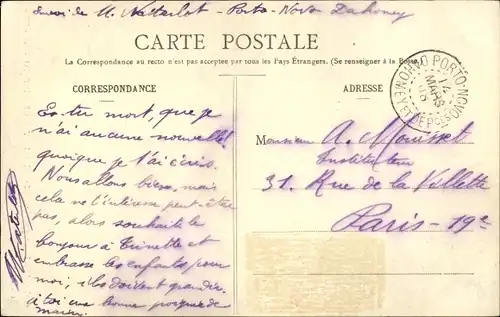 Envoi de M. Natterlot - Porto-Novo Dahomey
CARTE POSTALE
La Correspondance au recto n'est pas acceptée par tous les Pays Étrangers. (Se renseigner à la Poste.)
CORRESPONDANCE
Es-tu mort, que je
n'ai aucune nouvelle!
quoique je t'ai écris.
Nous allons bien, mais
cela ne t'intéresse peut-être
pas, alors souhaite le
bonjour à Ninette et
embrasse les enfants pour
moi, ils doivent grandir.
à toi une bonne poignée de
main.
ADRESSE
Monsieur A. Mousset
Instituteur
31. Rue de la Villette
Paris - 19e
PORTO-NOVO
MARS
DAHOMEY